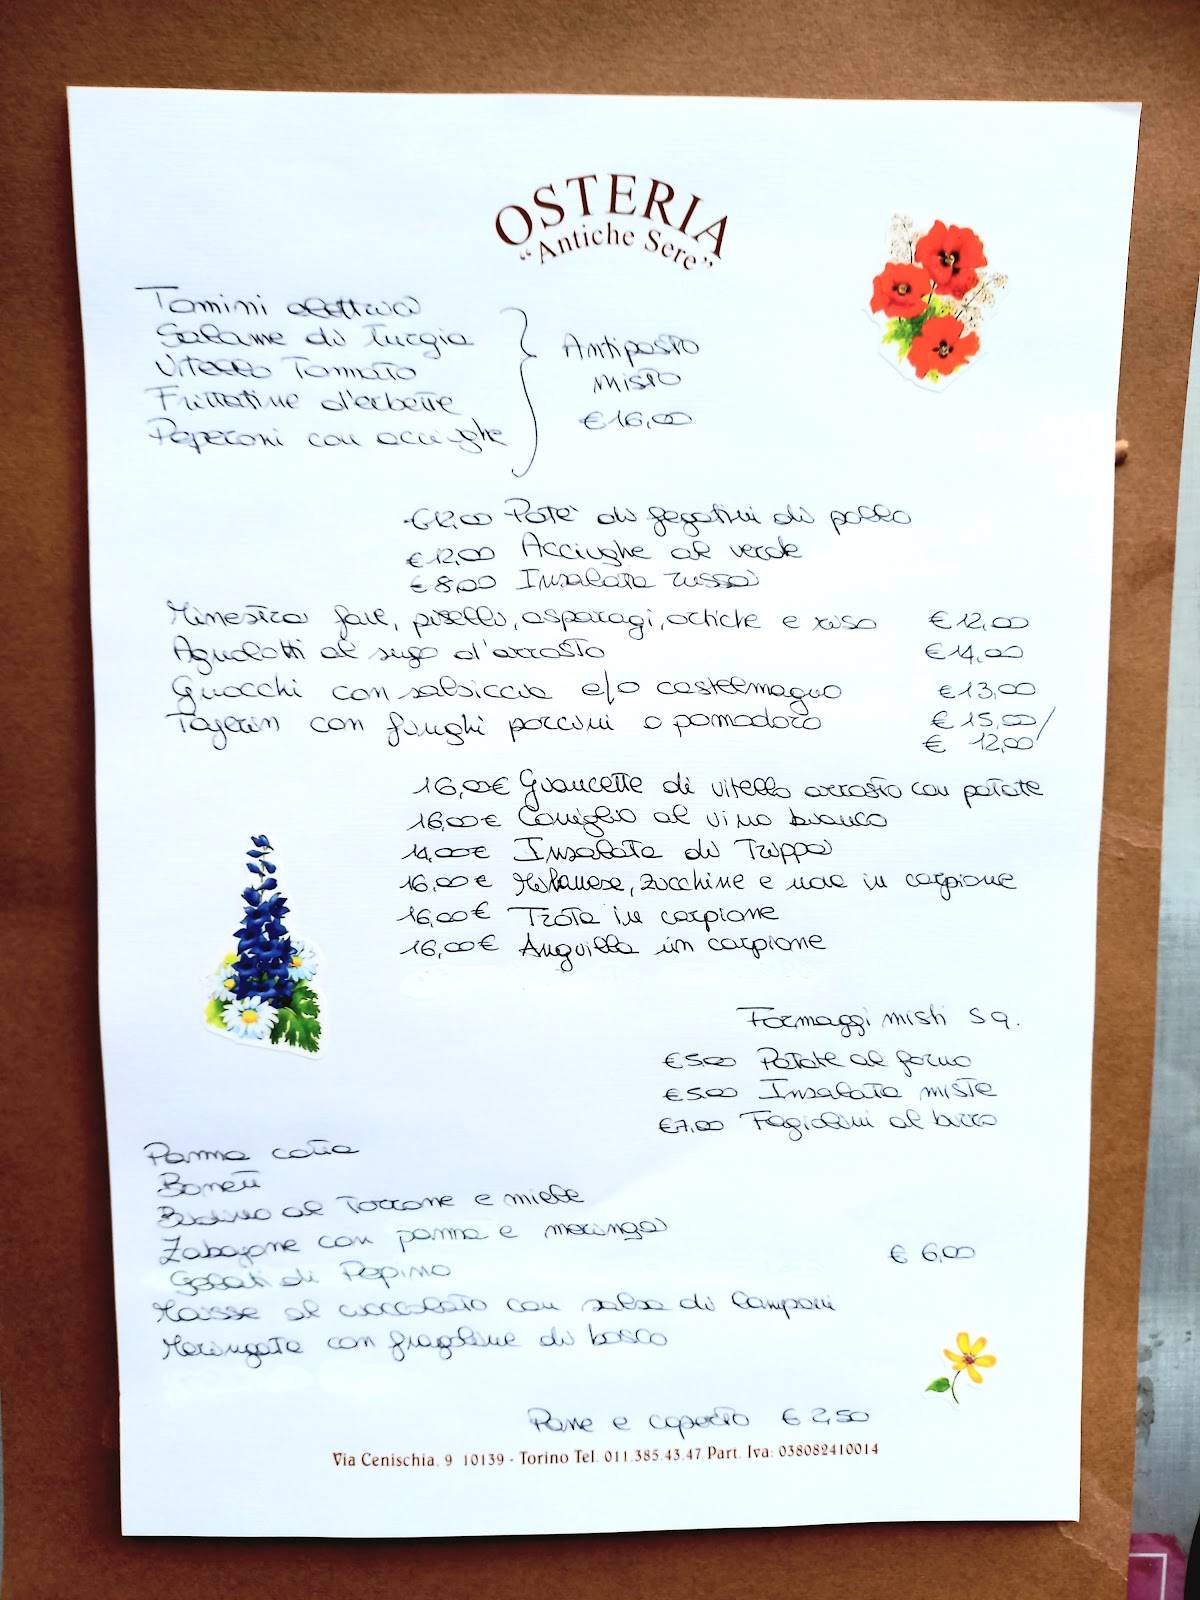 OSTERIA
"Antiche Sere"
Tomini elettrico
Salame di Turgia
Vitello Tonnato
Frittatine d'erbette
Peperoni con acciughe
Antipasto
misto
€ 16,00
€ 12,00 Paté di fegatini di pollo
€ 12,00 Acciughe al verde
€ 8,00 Insalata russa
Minestra fave, piselli, asparagi, ortiche e riso € 12,00
Agnolotti al sugo d'arrosto € 14,00
Gnocchi con salsiccia e/o castelmagno € 13,00
Tajerin con funghi porcini o pomodoro € 15,00/
€ 12,00
16,00€ Guancette di vitello arrosto con patate
16,00€ Coniglio al vino bianco
14,00€ Insalata di Trippa
16,00€ Milanese, zucchine e uova in carpione
16,00€ Trota in carpione
16,00€ Anguilla in carpione
Formaggi misti s.q.
€ 5,00 Patate al forno
€ 5,00 Insalata miste
€ 7,00 Fagiolini al burro
Panna cotta
Bonett
Budino al Torrone e miele
Zabajone con panna e meringa
Gelati di Pepino
€ 6,00
Mousse al cioccolato con salsa di lamponi
Meringata con fragoline di bosco
Pane e coperto € 2,50
Via Cenischia, 9 10139 - Torino Tel. 011.385.43.47 Part. Iva: 038082410014